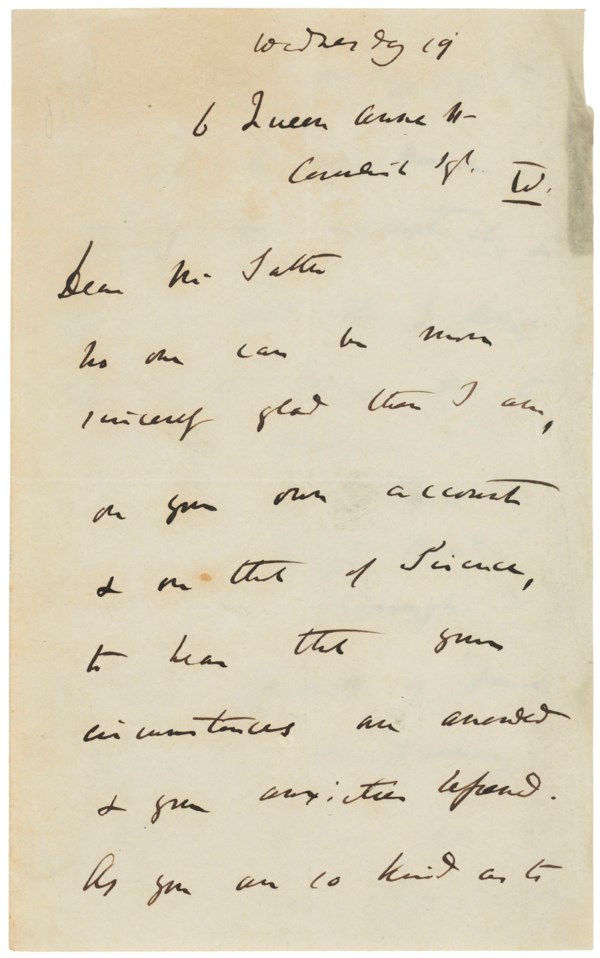 Wednesday 19
6 Queen Anne St
Cavendish Sqr. W.
Dear Mr
No one can be more
sincerely glad than I am,
on your own account
& on that of Science,
to hear that your
circumstances are amended
& your anxieties lessened.
As you are so kind as to